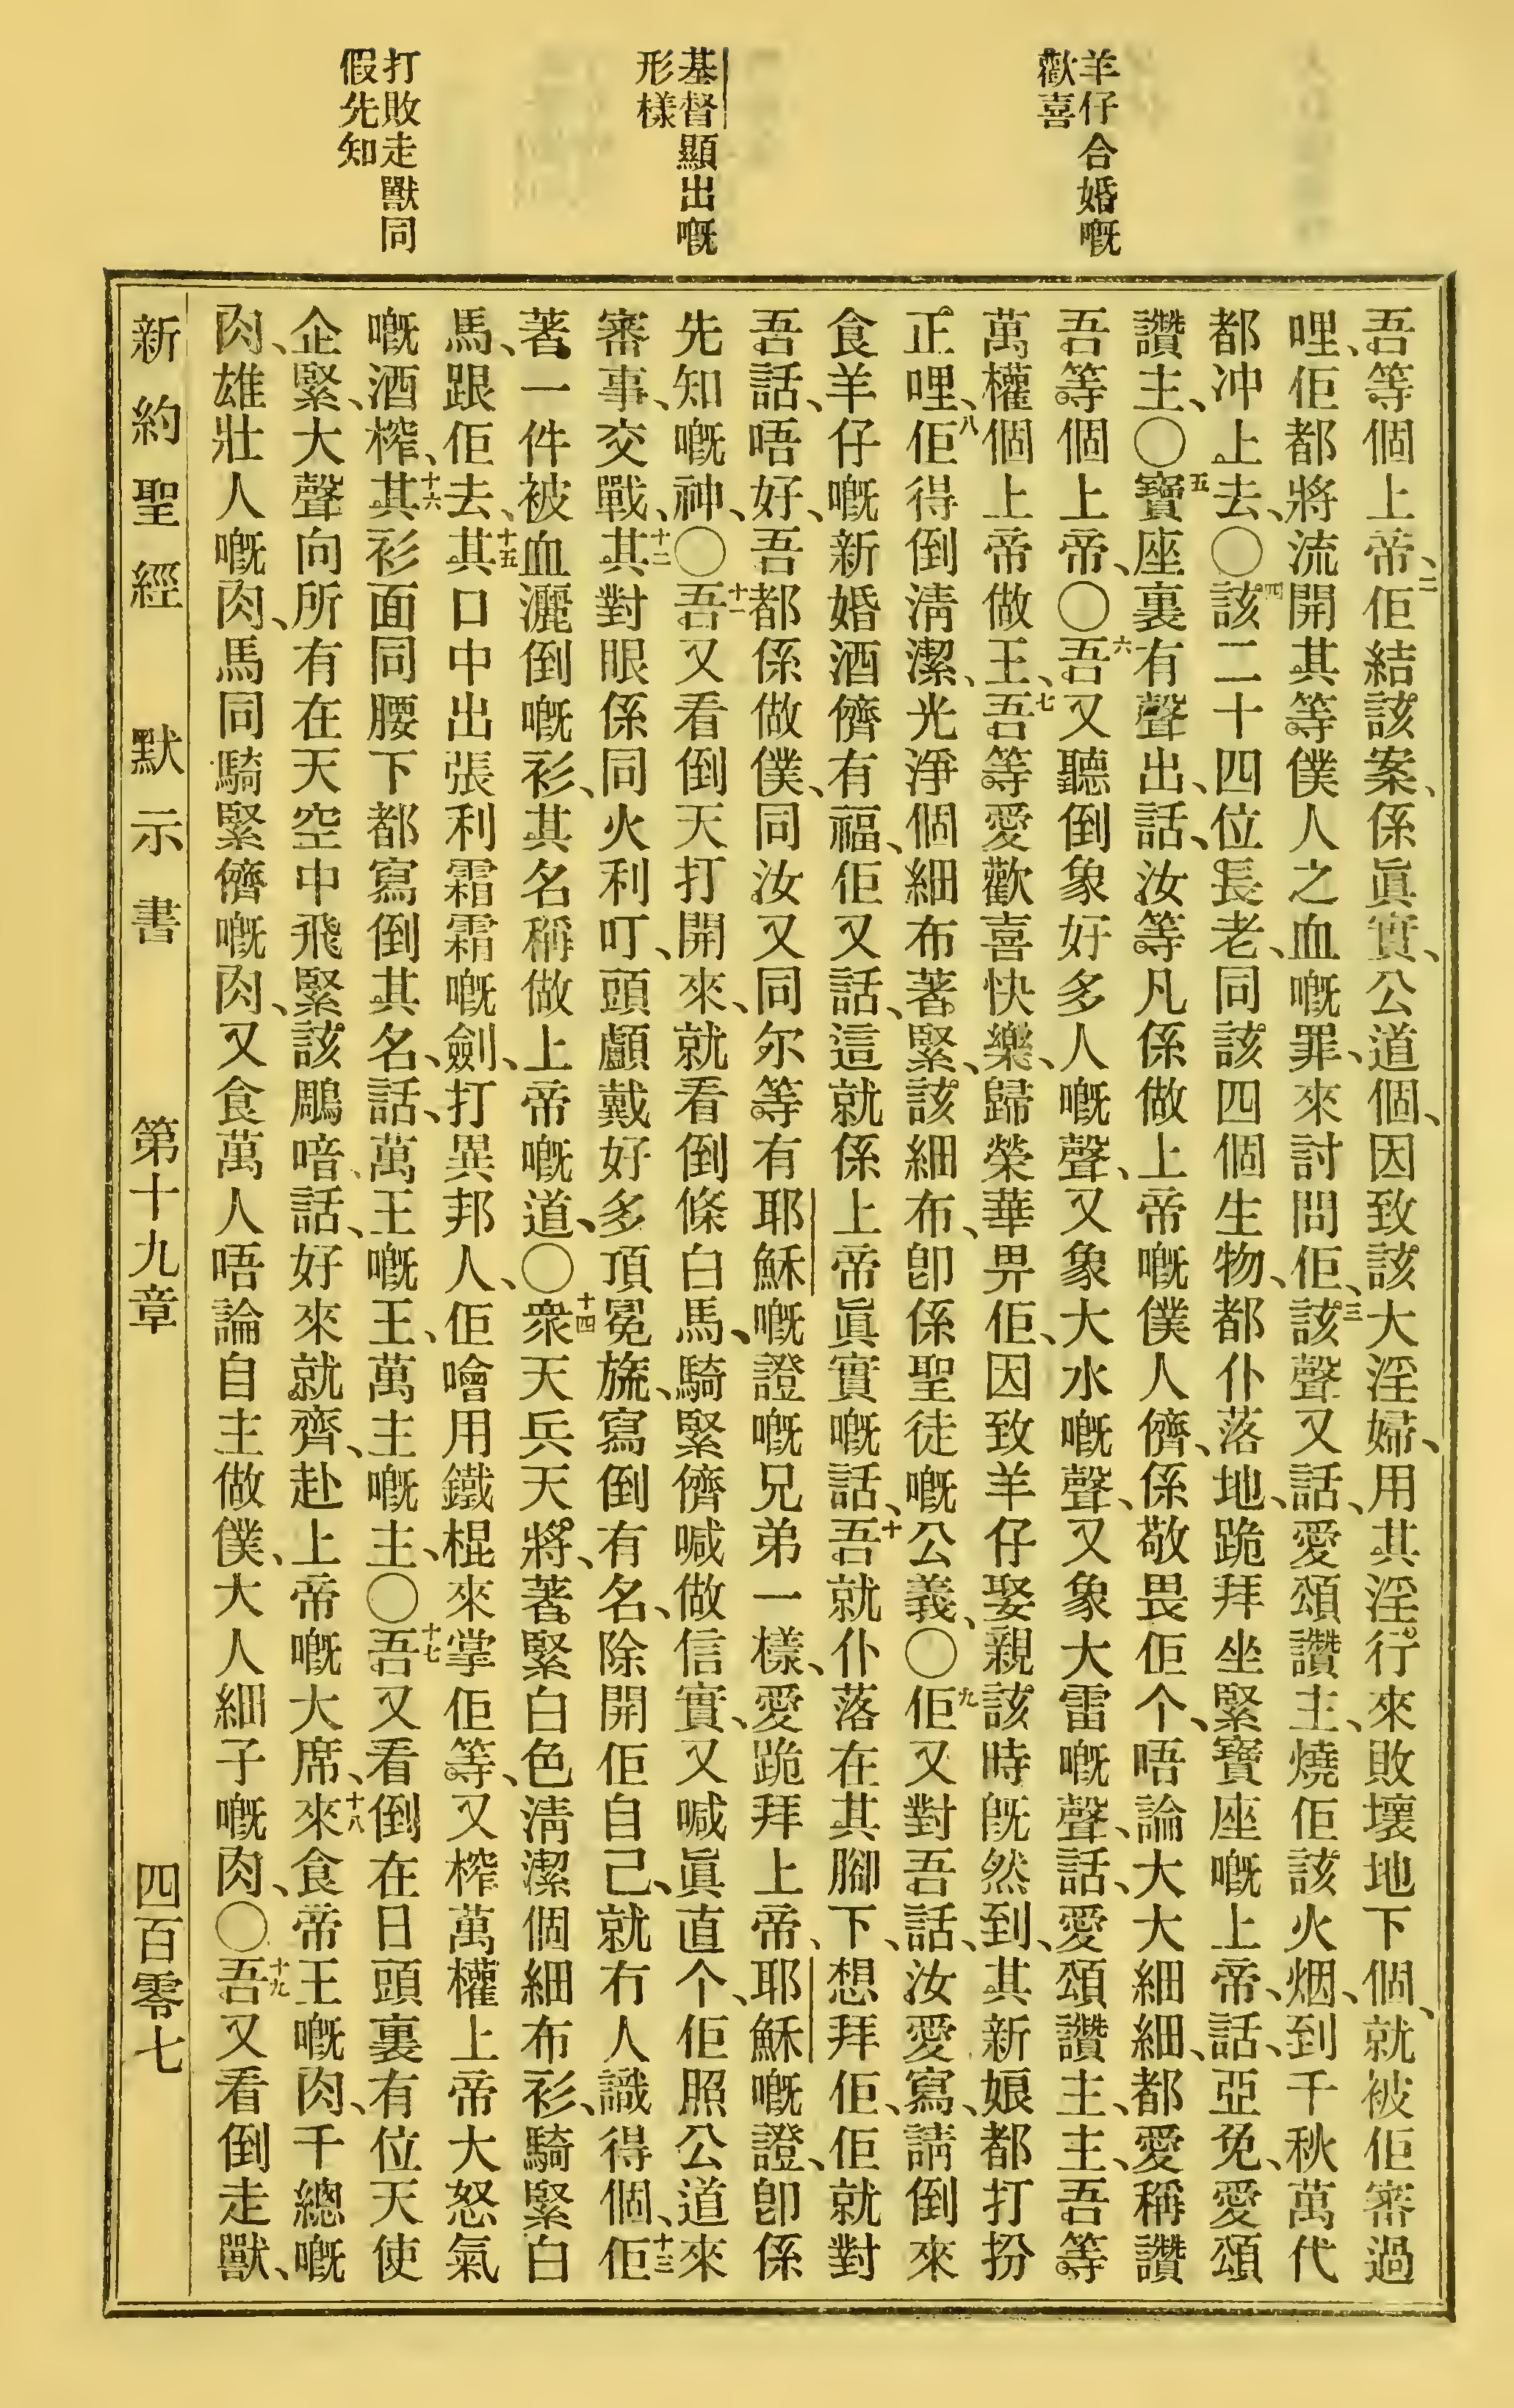 羊仔合婚嘅
歡喜
基督顯出嘅
形樣
打敗走獸同
假先知
吾等個上帝、二佢結該案、係眞實、公道個、因致該大淫婦、用其淫行來敗壞地下個、就被佢審過
哩、佢都將流開其等僕人之血嘅罪、來討問佢、三該聲又話、愛頌讚主、燒佢該火烟、到千秋萬代
都冲上去、〇四該二十四位長老、同該四個生物、都仆落地、跪拜坐緊寶座嘅上帝、話、亞免、愛頌
讚主、〇五寶座裏有聲出、話、汝等凡係做上帝嘅僕人儕、係敬畏佢个、唔論大大細細、都愛稱讚
吾等個上帝、〇六吾又聽倒象好多人嘅聲、又象大水嘅聲、又象大雷嘅聲、話、愛頌讚主、主、吾等
萬權個上帝做王、七吾等愛歡喜快樂、歸榮華畀佢、因致羊仔娶親該時旣然到、其新娘都打扮
正哩、八佢得倒淸潔、光淨個細布著緊、該細布、卽係聖徒嘅公義、〇九佢又對吾話、汝愛寫、請倒來
食羊仔嘅新婚酒儕有福、佢又話、這就係上帝眞實嘅話、十吾就仆落在其腳下、想拜佢、佢就對
吾話、唔好、吾都係做僕、同汝又同尔等有耶穌嘅證嘅兄弟一樣、愛跪拜上帝、耶穌嘅證、卽係
先知嘅神、〇十一吾又看倒天打開來、就看倒條白馬、騎緊儕喊做信實、又喊眞直个、佢照公道來
審事、交戰、十二其對眼係同火利叮、頭顱戴好多頂冕旒、寫倒有名、除開佢自己、就冇人識得個、十三佢
著一件被血灑倒嘅衫、其名稱做上帝嘅道、〇十四衆天兵天將、著緊白色淸潔個細布衫、騎緊白
馬、跟佢去、十五其口中出張利霜霜嘅劍、打異邦人、佢噲用鐵棍來掌佢等、又榨萬權上帝大怒氣
嘅酒榨、十六其衫面同腰下都寫倒其名、話、萬王嘅王、萬主嘅主、〇十七吾又看倒在日頭裏有位天使
企緊、大聲向所有在天空中飛緊該鵰喑、話、好來就齊、赴上帝嘅大席、十八來食帝王嘅肉、千總嘅
肉、雄壯人嘅肉、馬同騎緊儕嘅肉、又食萬人唔論自主做僕、大人細子嘅肉、〇十九吾又看倒走獸、
新約聖經　默示書　第十九章　四百零七